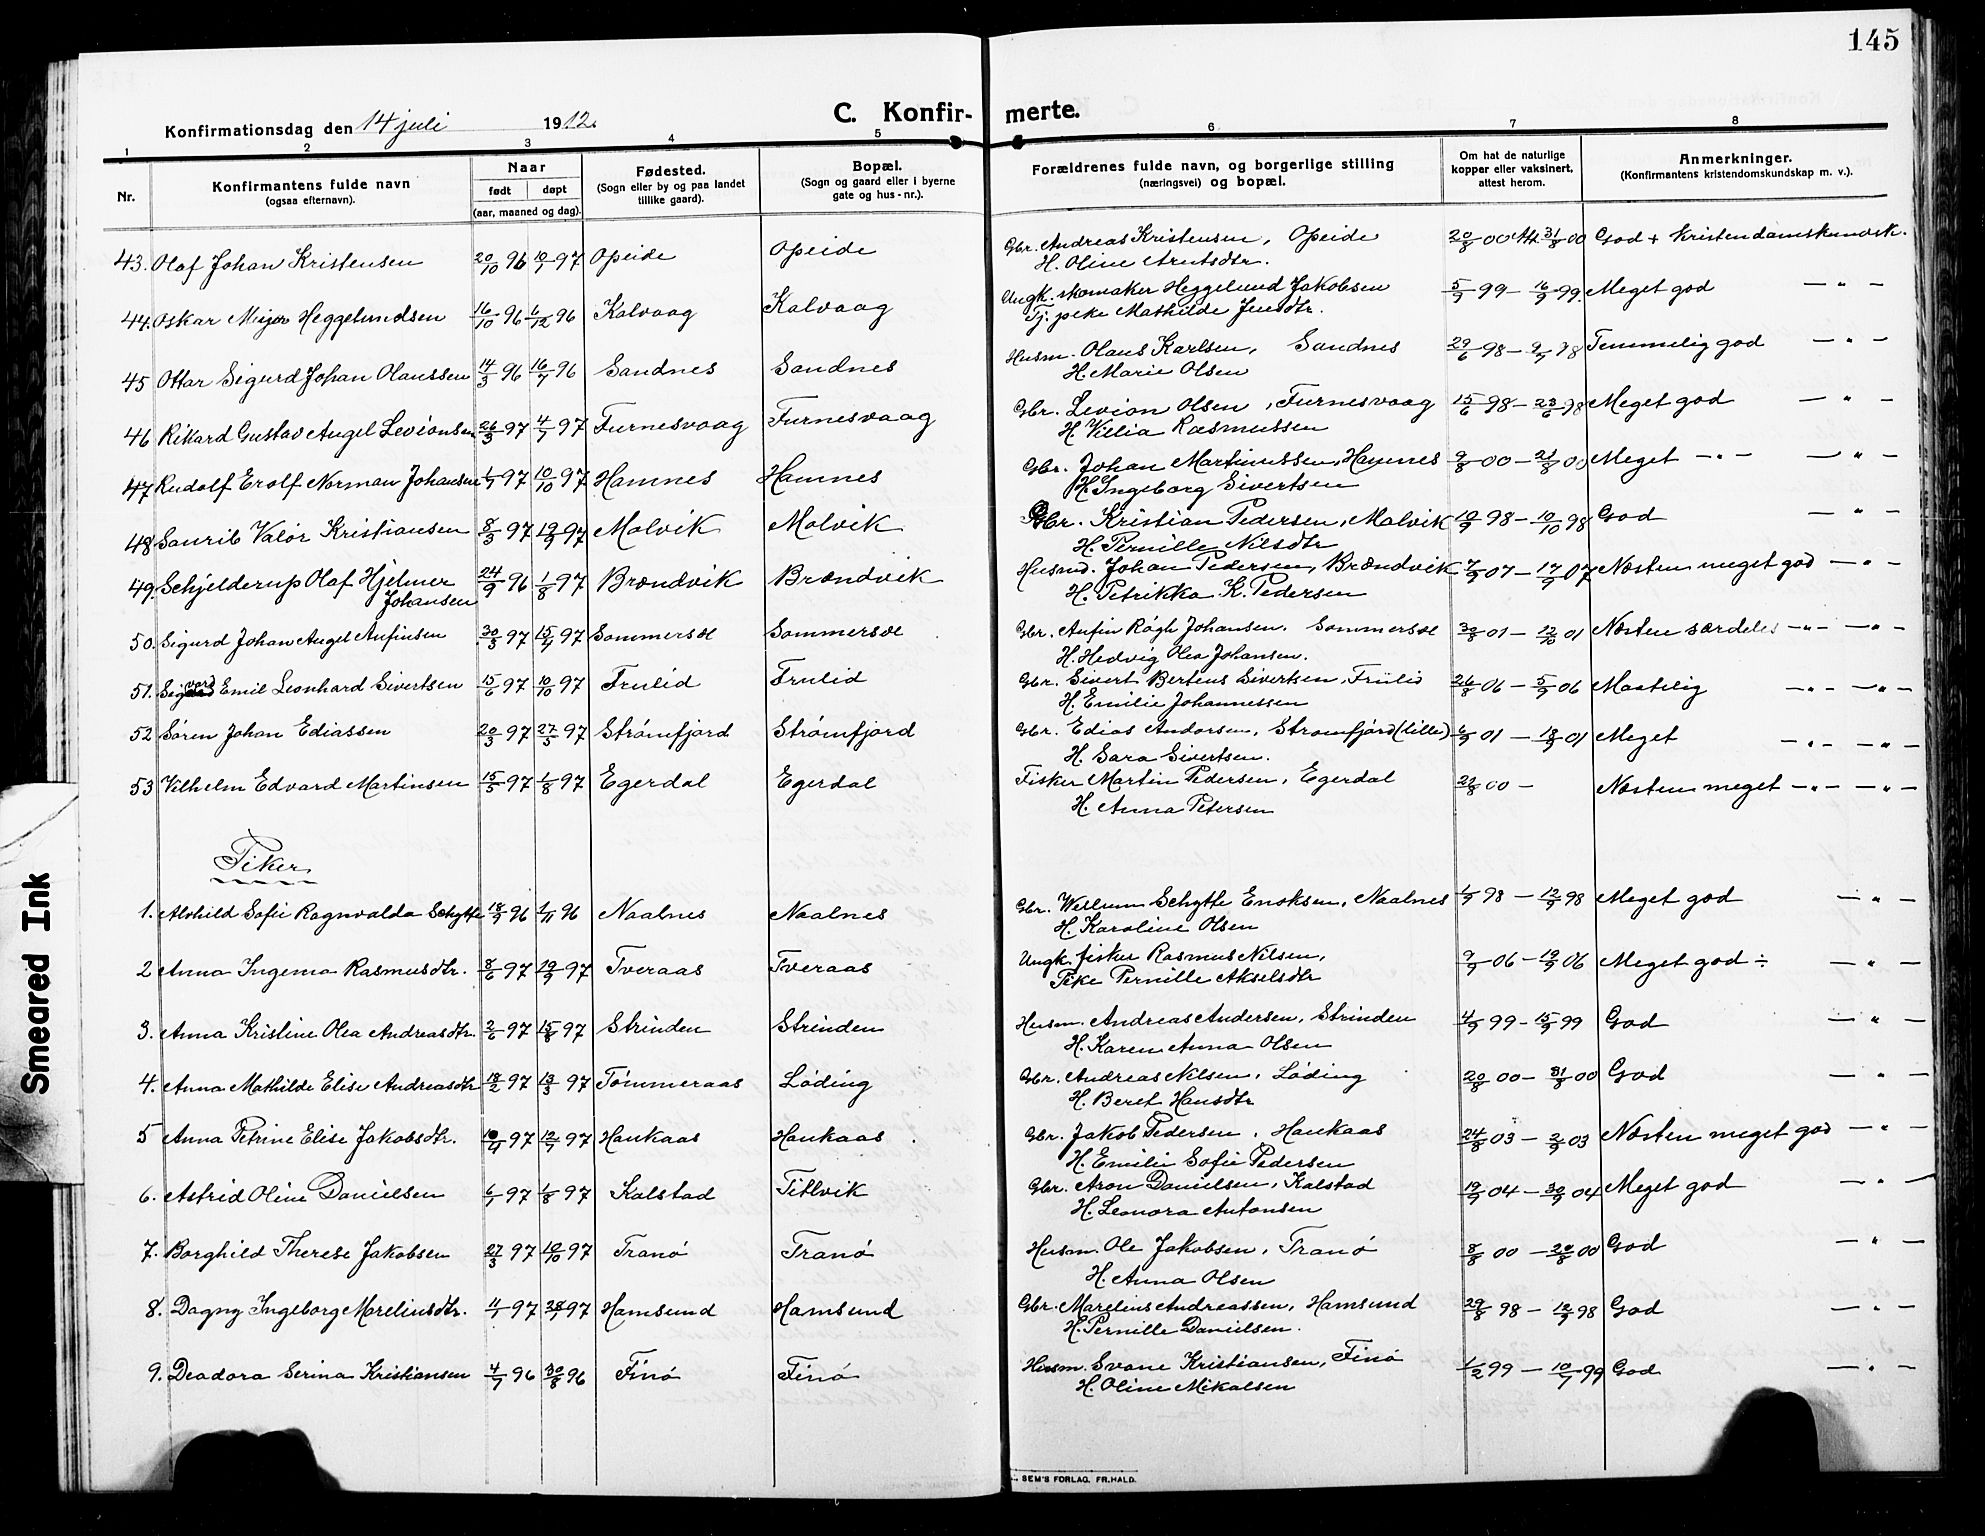 145
C. Konfir- merte.
Konfirmationsdag den 14 juli 1912.
1 2 3 4 5 6 7 8
Nr.
Konfirmantens fulde navn
(ogsaa efternavn).
Naar
født døpt
(aar, maaned og dag).
Fødested.
(Sogn eller by og paa landet
tillike gaard).
Bopæl.
(Sogn og gaard eller i byerne
gate og hus-nr.).
Forældrenes fulde navn, og borgerlige stilling
(næringsvei) og bopæl.
Om hat de naturlige
kopper eller vaksinert,
attest herom.
Anmerkninger.
(Konfirmantens kristendomskundskap m. v.).
43. Olaf Johan Kristensen 20/10 96 10/1 97 Opeide Opeide Gbr. Andreas Kristensen, Opeide 20/8 00 Att. 31/8 00 God + Kristendomskundsk.
H. Oline Arntsdtr.
44. Oskar Meyer Heggelundsen 16/10 96 6/12 96 Kalvaag Kalvaag Ungk. skomaker Heggelund Jakobsen 5/9 99 - 16/9 99 Meget god - " -
Tj. pike Mathilde Jensdtr.
45 Ottar Sigurd Johan Olaussen 14/3 96 16/7 96 Sandnes Sandnes Husm. Olaus Karlsen, Sandnes 29/6 98 - 9/7 98 Temmelig god - " -
H. Marie Olsen
46 Rikard Gustav Angel Levionsen 26/3 97 4/7 97 Furnesvaag Furnesvaag Gbr. Levion Olsen, Furnesvaag 15/6 98 - 23/6 98 Meget god - " -
H. Rasmussen
47 Rudolf Erolf Norman Johansen 1/7 97 10/10 97 Hamnes Hamnes Gbr. Johan Martinussen, Hamnes 9/8 00 - 21/8 00 Meget - " - - " -
H. Ingeborg Sivertsen
48 Valør Kristiansen 8/3 97 19/9 97 Molvik Molvik Gbr. Kristian Pedersen, Molvik 10/9 98 - 10/10 98 God - " -
H. Pernille Nilsdtr
49. Schjelderup Olaf Hjelmer 24/9 96 1/8 97 Brændvik Brændvik Husmd. Johan Pedersen, Brændvik 7/9 07 - 17/9 07 Næsten meget god - " -
Johansen H. Petrikka K. Pedersen
50. Sigurd Johan Angel Anfinsen 30/3 97 15/7 97 Sommersæ Sommersæ Gbr. Anfin Røgh Johansen. Sommersæ 30/8 01 - 12/10 01 Næsten særdeles - " - - " -
H. Hedvig Olea Johansen.
51. Sigvard Emil Leonhard Sivertsen 15/6 97 10/10 97 Frulid Frulid Gbr. Sivert Berteus Sivertsen, Frulid 26/8 06 - 5/9 06 Maatelig - " - - " -
H. Emilie Johannessen
52 Søren Johan Ediassen 20/3 97 27/5 97 Strømfjord Strømfjord Gbr. Edias Andorsen, Strømfjord (lille) 6/9 01 - 18/9 01 Meget - " - - " -
H. Sara Sivertsen.
53 Vilhelm Edvard Martinsen 15/5 97 1/8 97 Egerdal Egerdal Fisker Martin Pedersen, Egerdal 29/8 00 - Næsten meget - " - - " -
H. Anna Petersen
Piker
1. Alvhild Sofie Ragnvalda Schytte 18/9 96 1/11 96 Naalnes Naalnes Gbr. Schytte Enoksen, Naalnes 1/9 98 - 12/9 98 Meget god - " -
H. Karoline Olsen
2 Anna Ingema Rasmusdtr. 8/6 97 19/9 97 Tveraas Tveraas Ungk. fisker Rasmus Nilsen, 9/9 06 - 19/9 06 Meget god ÷ - " -
Pike Pernille Akselsdtr
3. Anna Kristine Olea Andreasdtr. 2/6 97 15/8 97 Strinden Strinden Husm. Andreas Andersen, Strinden 4/9 99 - 15/9 99 God - " -
H. Karen Anna Olsen
4. Anna Mathilde Elise Andreasdtr 18/2 97 13/3 97 Tømmeraas Løding Gbr. Andreas Nilsen, Løding 20/8 00 - 31/8 00 God - " -
H. Beret Hansdtr
5 Anna Petrine Elise Jakobsdtr. 10/4 97 12/7 97 Haukaas Haukaas Gbr. Jakob Pedersen, Haukaas 24/8 03 - 2/9 03 Næsten meget god - " -
H. Emilie Sofie Pedersen
6. Astrid Oline Danielsen 6/1 97 1/8 97 Kalstad Titlvik Gbr. Aron Danielsen, Kalstad 19/9 04 - 30/9 04 Meget god - " -
H. Leonora Antonsen
7. Borghild Therese Jakobsen 27/3 97 10/10 97 Tranø Tranø Husm. Ole Jakobsen, Tranø 8/8 00 - 20/8 00 God - " -
H. Anna Olsen
8. Dagny Ingeborg Mareliusdtr. 4/1 97 97 Hamsund Hamsund Gbr. Marelius Andreassen, Hamsund 29/8 98 - 12/9 98 God - " -
H. Pernille Danielsen.
9. Deodora Serina Kristiansen 4/7 96 30/8 96 Finø Finø Husm. Svane Kristiansen, Finø 1/2 99 - 10/7 99 God - " -
H. Oline Mikalsen
SEM'S FORLAG, FR.HALD.
Smeared Ink